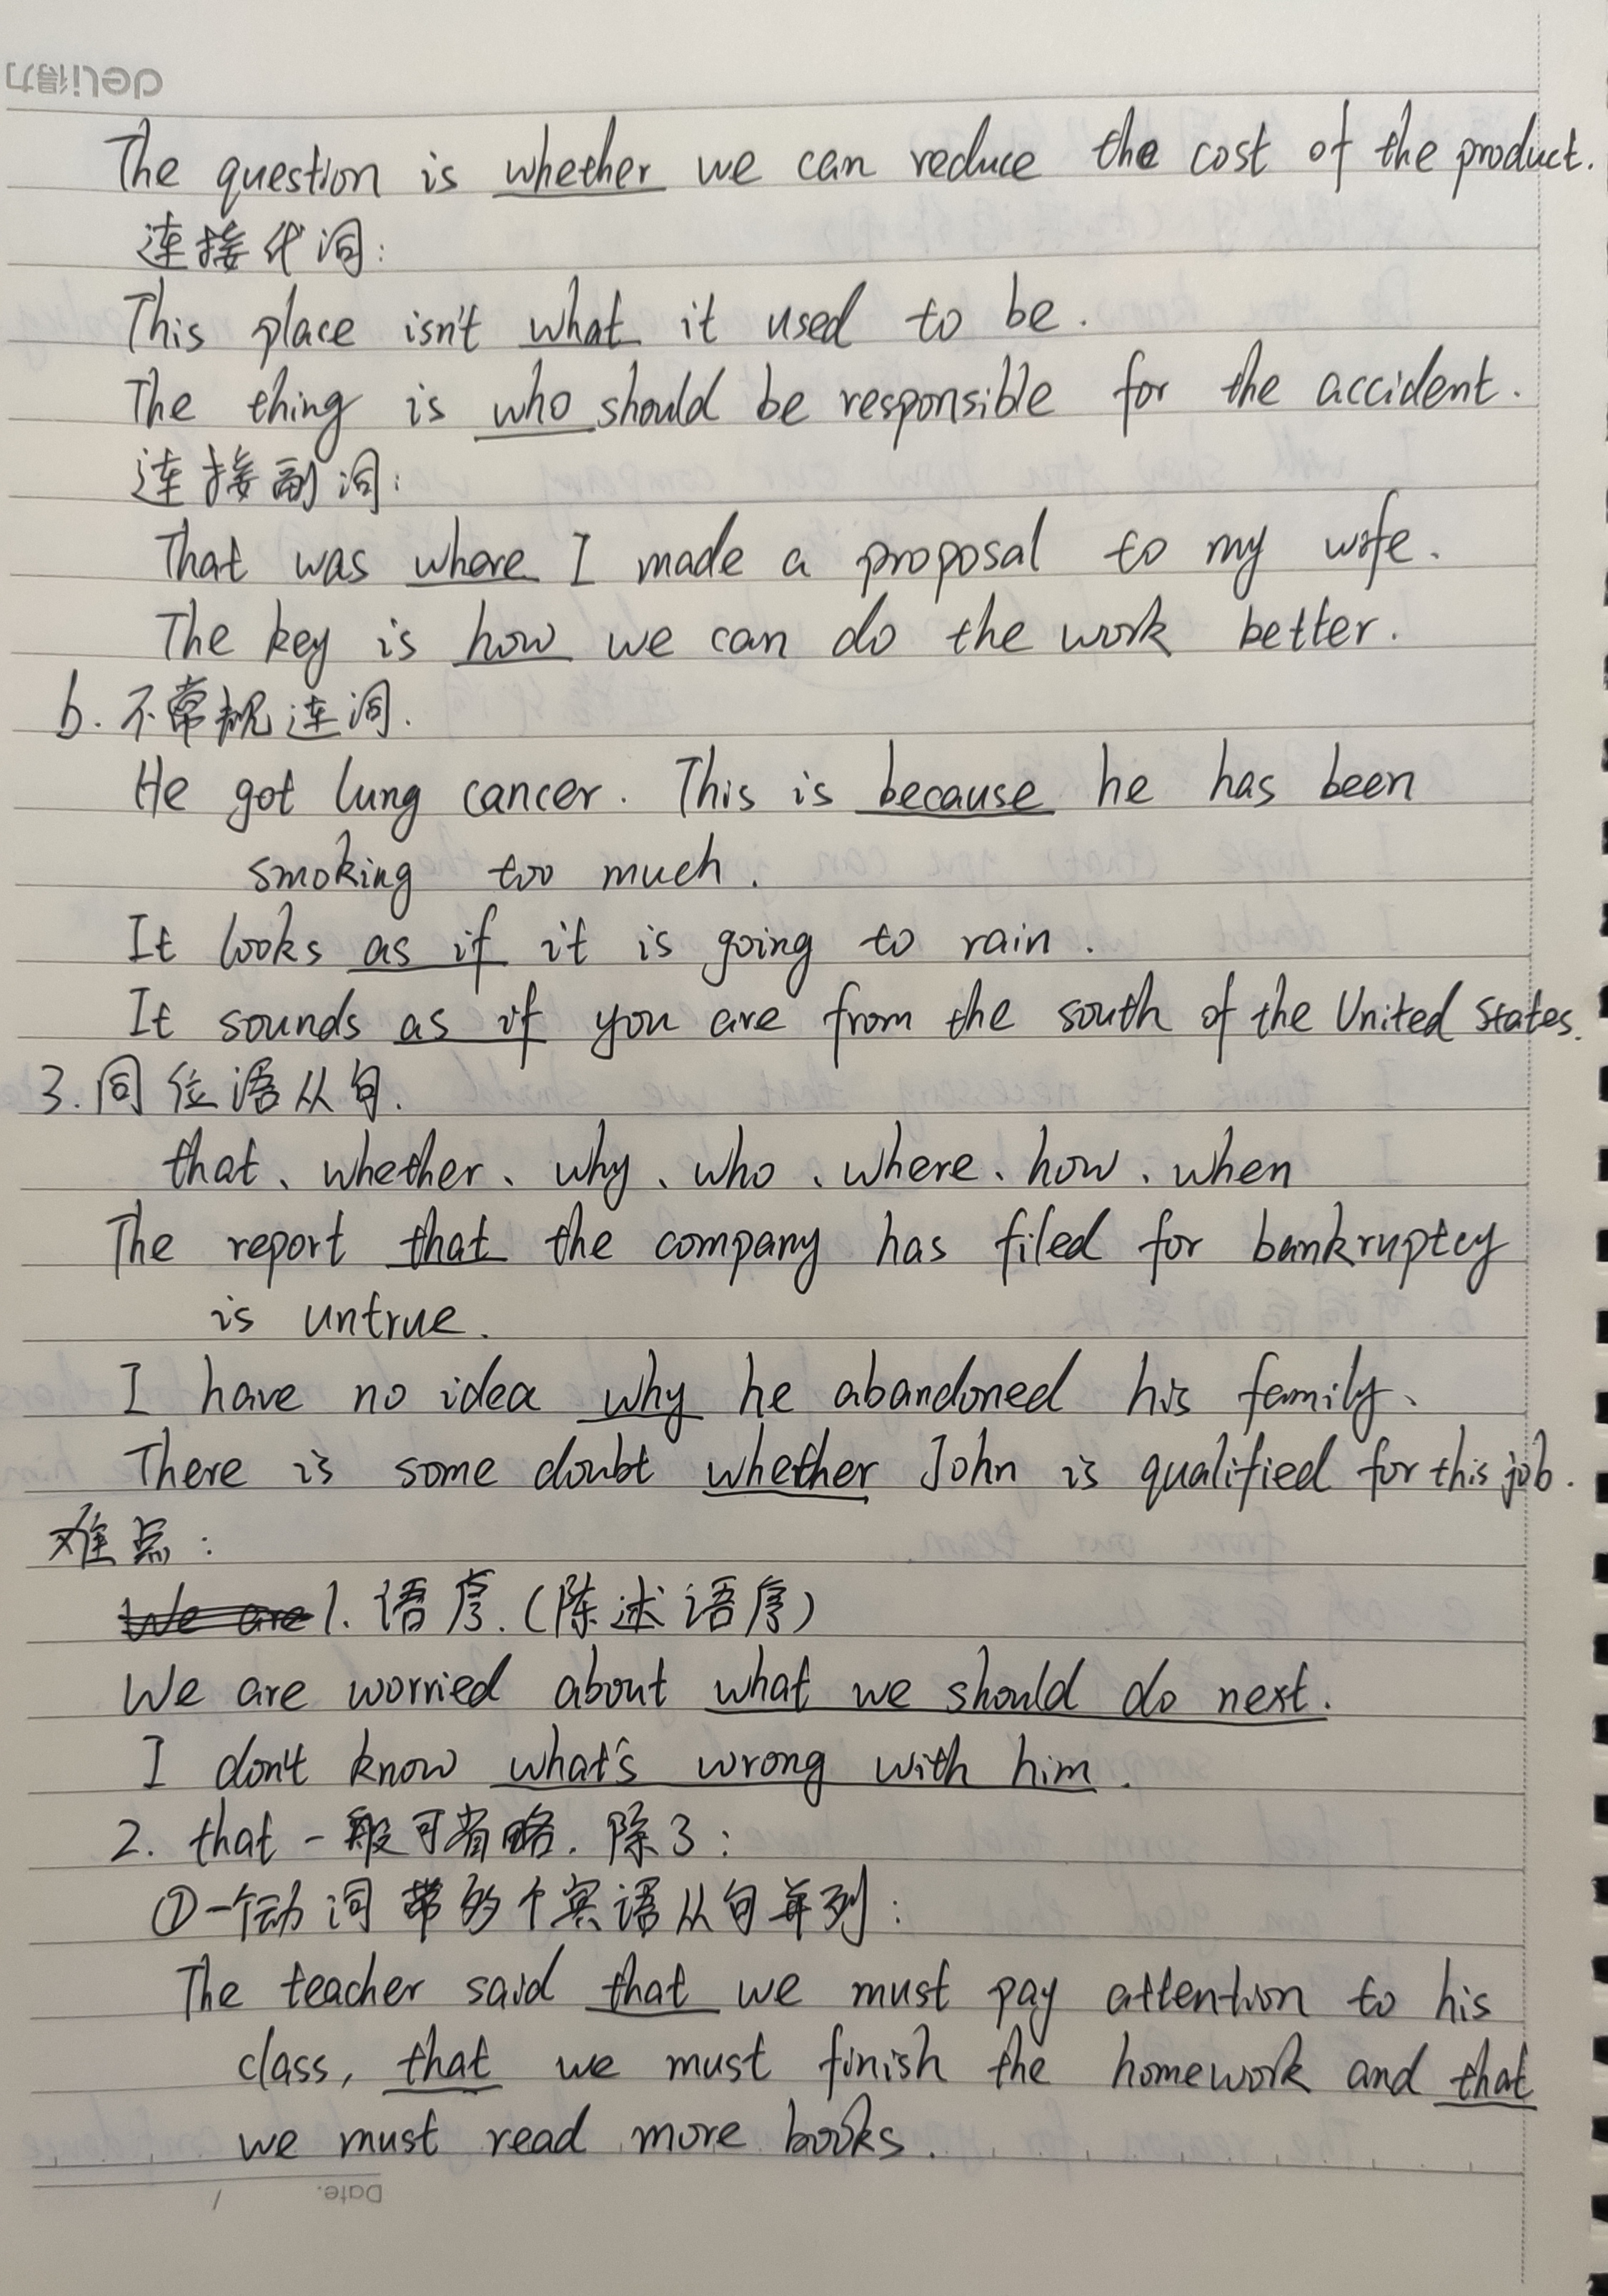 deli得力
The question is whether we can reduce the cost of the product.
连接代词:
This place isn't what it used to be.
The thing is who should be responsible for the accident.
连接副词:
That was where I made a proposal to my wife.
The key is how we can do the work better.
b. 不常规连词.
He got lung cancer. This is because he has been
smoking too much.
It looks as if it is going to rain.
It sounds as if you are from the south of the United States.
3. 同位语从句.
that、whether、why、who、where、how、when
The report that the company has filed for bankruptcy
is untrue.
I have no idea why he abandoned his family.
There is some doubt whether John is qualified for this job.
难点:
We are 1. 语序.(陈述语序)
We are worried about what we should do next.
I don't know what's wrong with him.
2. that 一般可省略. 除3:
①一个动词带多个宾语从句并列:
The teacher said that we must pay attention to his
class, that we must finish the homework and that
we must read more books.
Date. /